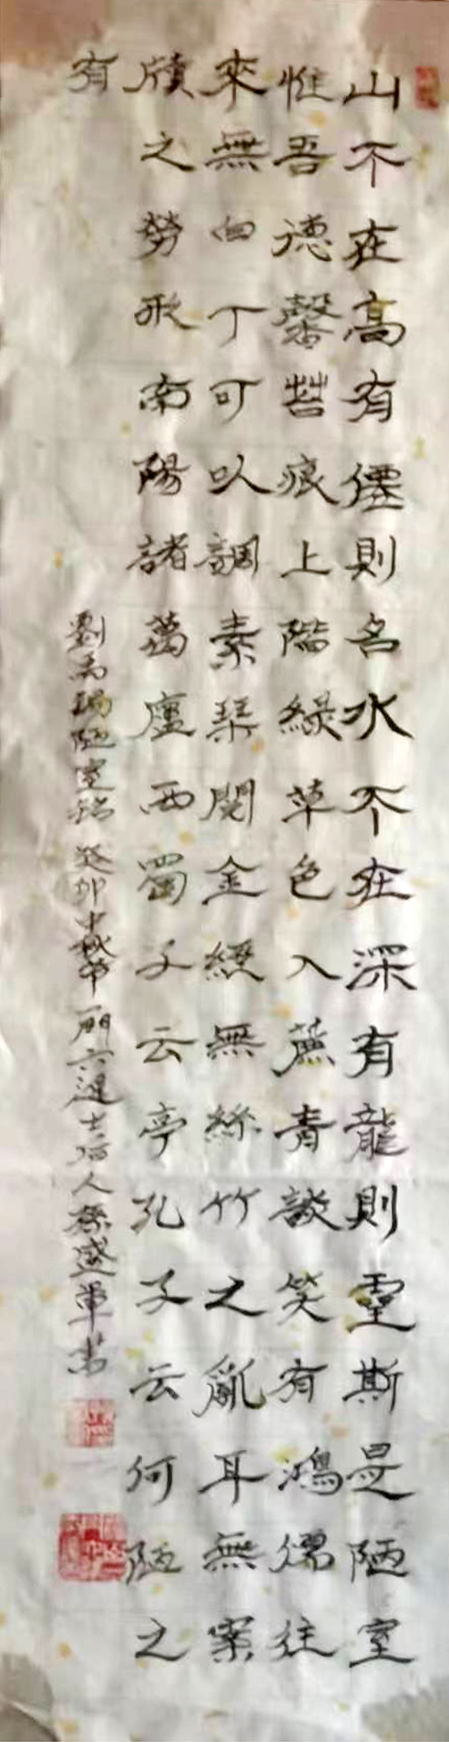 山不在高有僊則名水不在深有龍則靈斯是陋室
惟吾德馨苔痕上階緑草色入蔗青談笑有鴻儒往
來無白丁可以調素琴閱金經無絲竹之亂耳無案
牘之勞形南陽諸葛廬西蜀子云亭孔子云何陋之
有
劉禹錫陋室銘 癸卯中秋节一門六進士后人孫盛軍书